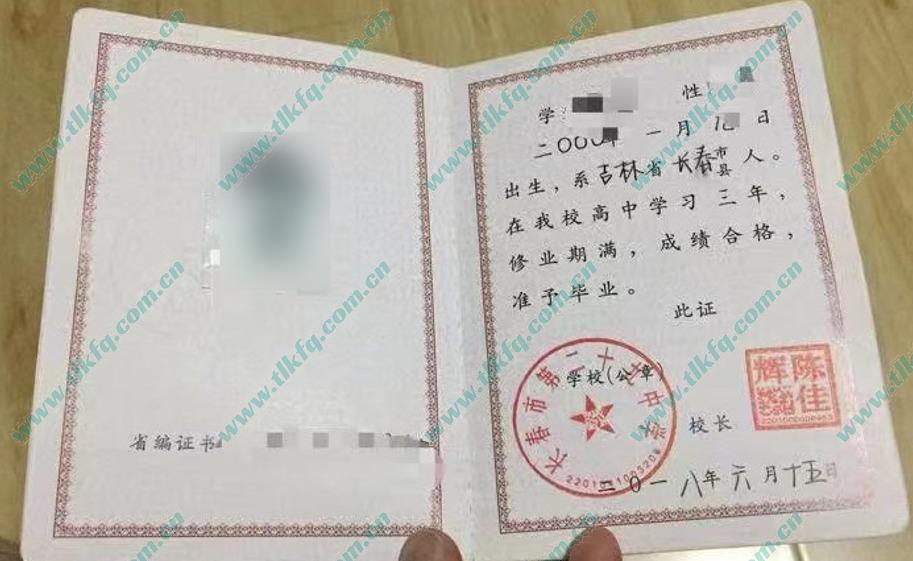 www.tlkfq.com.cn
学
性
二000年一月九日
出生，系吉林省长春市县人。
在我校高中学习三年，
修业期满，成绩合格，
准予毕业。
此证
学校(公章)
长春市第二十中学
2201011003208
校长
陈佳辉
二0一八年六月十五日
省编证书